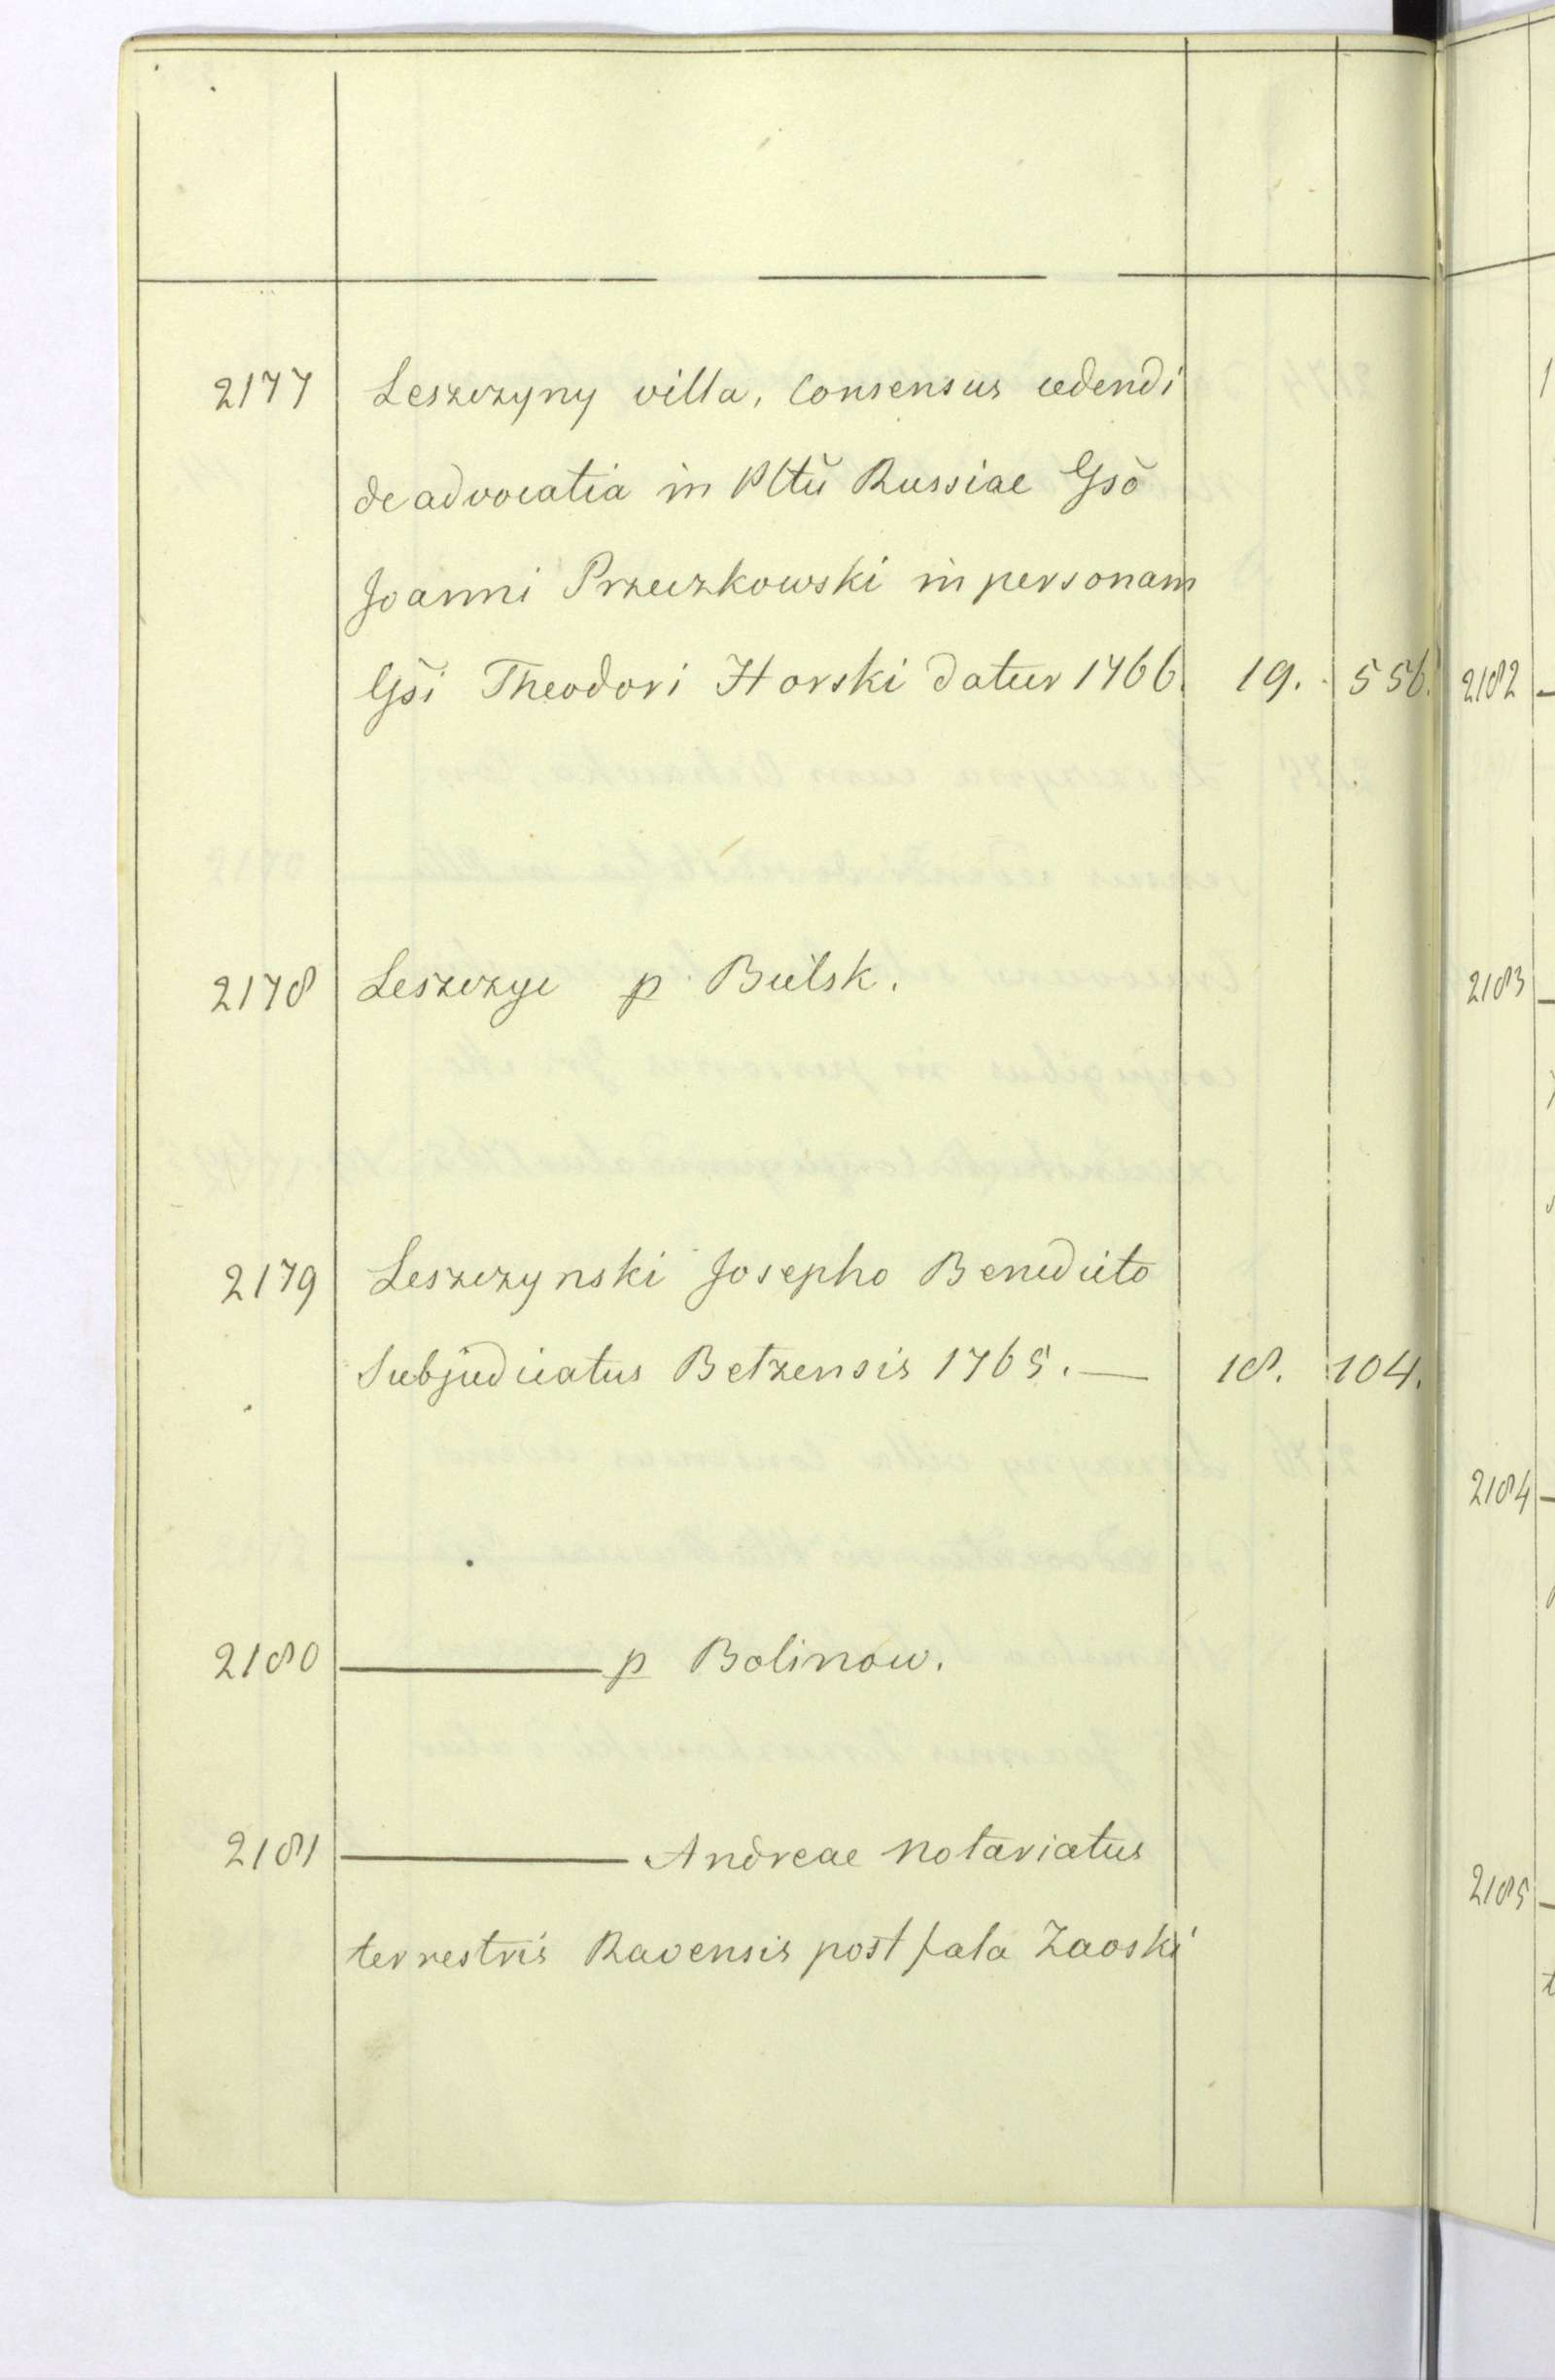 2177 Leszczyny villa, Consensus cedendi
de advocatia in Pltŭ Russiae Gsŏ
Joanni Przeczkowski in personam
Gs̆i Theodori Horski datur 1766. 19. 556.
2178 Leszczye p Bielsk.
2179 Leszczynski Josepho Benedicto
Subjudicatus Betzensis 1765. — 18. 104.
2180 ——— p Bolinow.
2181 ——— Andreae Notariatus
terrestris Ravensis post fata Zaoski
2182
2183
2184
2185